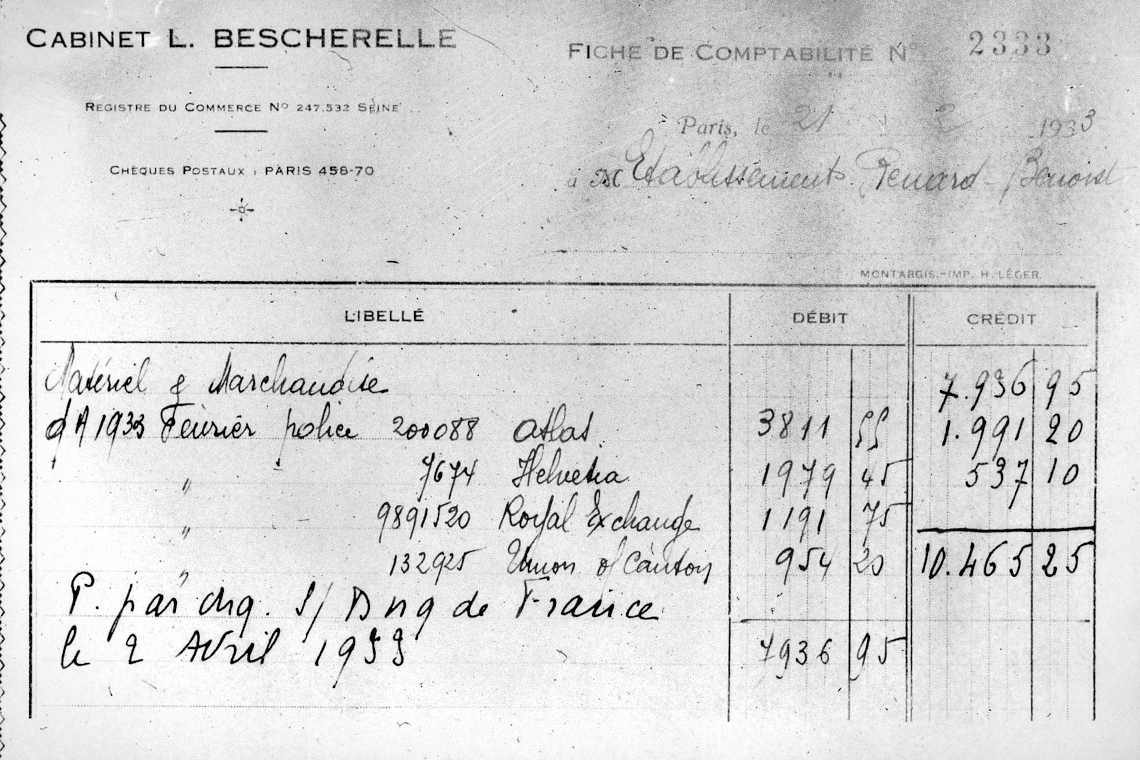 CABINET L. BESCHERELLE
REGISTRE DU COMMERCE No 247.532 SEINE
CHÈQUES POSTAUX : PARIS 458-70
FICHE DE COMPTABILITÉ No 2333
Paris, le 21 2 1933
à M Etablissements Renard-Benoist
MONTARGIS.-IMP. H. LÉGER.
LIBELLÉ DÉBIT CRÉDIT
Matériel & Marchandise 7.936 95
1933 Février police 200088 Atlas. 3811 55 1.991 20
" 7674 Helvetia 1979 45 537 10
" 9891520 Royal Exchange 1191 75
" 132925 Union of Canton 954 20 10.465 25
P. par chq. S/ Bnq de France
le 2 Avril 1933 7936 95